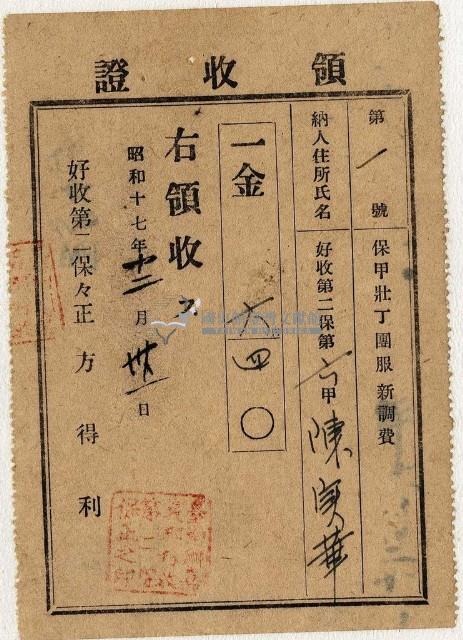 領收證
第 一 號 保甲壯丁團服新調費
納入住所氏名 好收第二保第六甲 陳實華
一金 七四〇
右領收ス
昭和十七年十二月卅一日
好收第二保々正 方得利